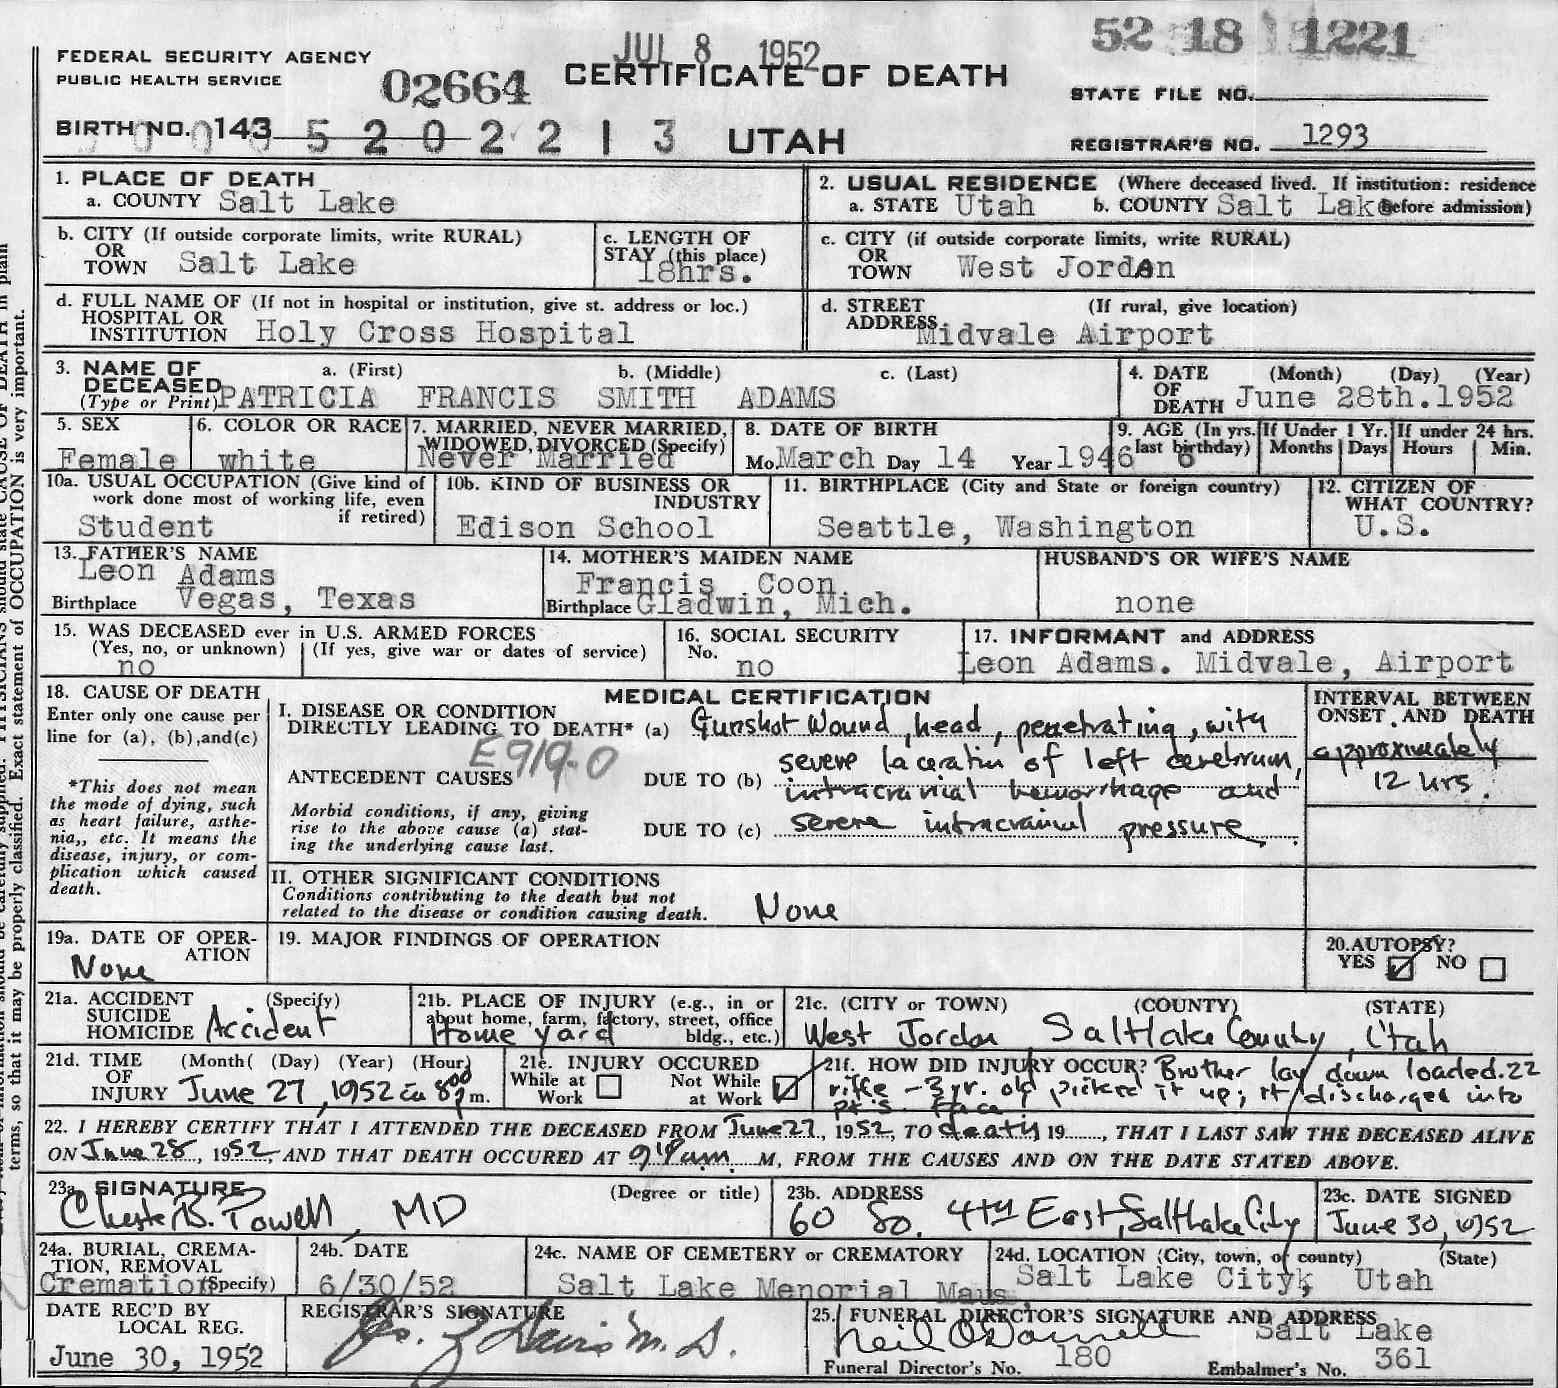 JUL 8 1952
52 18 1221
FEDERAL SECURITY AGENCY
PUBLIC HEALTH SERVICE
02664
CERTIFICATE OF DEATH
STATE FILE NO.
BIRTH NO. 143 5 2 0 2 2 1 3
UTAH
REGISTRAR'S NO. 1293
1. PLACE OF DEATH
a. COUNTY Salt Lake
2. USUAL RESIDENCE (Where deceased lived. If institution: residence before admission)
a. STATE Utah b. COUNTY Salt Lake
b. CITY (If outside corporate limits, write RURAL)
OR
TOWN Salt Lake
c. LENGTH OF
STAY (this place)
18hrs.
c. CITY (if outside corporate limits, write RURAL)
OR
TOWN West Jordan
d. FULL NAME OF (If not in hospital or institution, give st. address or loc.)
HOSPITAL OR
INSTITUTION Holy Cross Hospital
d. STREET (If rural, give location)
ADDRESS Midvale Airport
3. NAME OF DECEASED a. (First) b. (Middle) c. (Last)
(Type or Print) PATRICIA FRANCIS SMITH ADAMS
4. DATE (Month) (Day) (Year)
OF
DEATH June 28th.1952
5. SEX
Female
6. COLOR OR RACE
white
7. MARRIED, NEVER MARRIED,
WIDOWED, DIVORCED (Specify)
Never Married
8. DATE OF BIRTH
Mo. March Day 14 Year 1946
9. AGE (In yrs. last birthday) 6
If Under 1 Yr.
Months Days
If under 24 hrs.
Hours Min.
10a. USUAL OCCUPATION (Give kind of
work done most of working life, even
if retired)
Student
10b. KIND OF BUSINESS OR
INDUSTRY
Edison School
11. BIRTHPLACE (City and State or foreign country)
Seattle, Washington
12. CITIZEN OF
WHAT COUNTRY?
U.S.
13. FATHER'S NAME
Leon Adams
Birthplace Vegas, Texas
14. MOTHER'S MAIDEN NAME
Francis Coon
Birthplace Gladwin, Mich.
HUSBAND'S OR WIFE'S NAME
none
15. WAS DECEASED ever in U.S. ARMED FORCES
(Yes, no, or unknown) (If yes, give war or dates of service)
no
16. SOCIAL SECURITY
No.
no
17. INFORMANT and ADDRESS
Leon Adams. Midvale, Airport
18. CAUSE OF DEATH
Enter only one cause per
line for (a), (b),and(c)
*This does not mean
the mode of dying, such
as heart failure, asthe-
nia,, etc. It means the
disease, injury, or com-
plication which caused
death.
MEDICAL CERTIFICATION
I. DISEASE OR CONDITION
DIRECTLY LEADING TO DEATH* (a) Gunshot Wound, head, penetrating, with
E919-0
severe laceration of left cerebrum,
ANTECEDENT CAUSES DUE TO (b) intracranial hemorrhage and
Morbid conditions, if any, giving
rise to the above cause (a) stat-
ing the underlying cause last.
DUE TO (c) severe intracranial pressure
INTERVAL BETWEEN
ONSET AND DEATH
approximately
12 hrs.
II. OTHER SIGNIFICANT CONDITIONS
Conditions contributing to the death but not
related to the disease or condition causing death.
None
19a. DATE OF OPER-
ATION
None
19. MAJOR FINDINGS OF OPERATION
20. AUTOPSY?
YES NO
21a. ACCIDENT (Specify)
SUICIDE
HOMICIDE Accident
21b. PLACE OF INJURY (e.g., in or
about home, farm, factory, street, office
bldg., etc.)
Home yard
21c. (CITY or TOWN) (COUNTY) (STATE)
West Jordan Salt Lake County, Utah
21d. TIME (Month( (Day) (Year) (Hour)
OF
INJURY June 27, 1952 8:00 p m.
21e. INJURY OCCURED
While at
Work
Not While
at Work
21f. HOW DID INJURY OCCUR? Brother lay down loaded .22
rifle - 3 yr. old picked it up; it discharged into
pt's. face
22. I HEREBY CERTIFY THAT I ATTENDED THE DECEASED FROM June 27, 1952, TO death 19......, THAT I LAST SAW THE DECEASED ALIVE
ON June 28, 1952, AND THAT DEATH OCCURED AT M, FROM THE CAUSES AND ON THE DATE STATED ABOVE.
23a. SIGNATURE (Degree or title)
Chester B. Powell, MD
23b. ADDRESS
60 So. 4th East, Salt Lake City
23c. DATE SIGNED
June 30, 1952
24a. BURIAL, CREMA-
TION, REMOVAL
(Specify)
Cremation
24b. DATE
6/30/52
24c. NAME OF CEMETERY or CREMATORY
Salt Lake Menorial Maus.
24d. LOCATION (City, town, or county) (State)
Salt Lake City, Utah
DATE REC'D BY
LOCAL REG.
June 30, 1952
REGISTRAR'S SIGNATURE
Davis M.D.
25. FUNERAL DIRECTOR'S SIGNATURE AND ADDRESS
Neil O'Donnell Salt Lake
Funeral Director's No. 180 Embalmer's No. 361